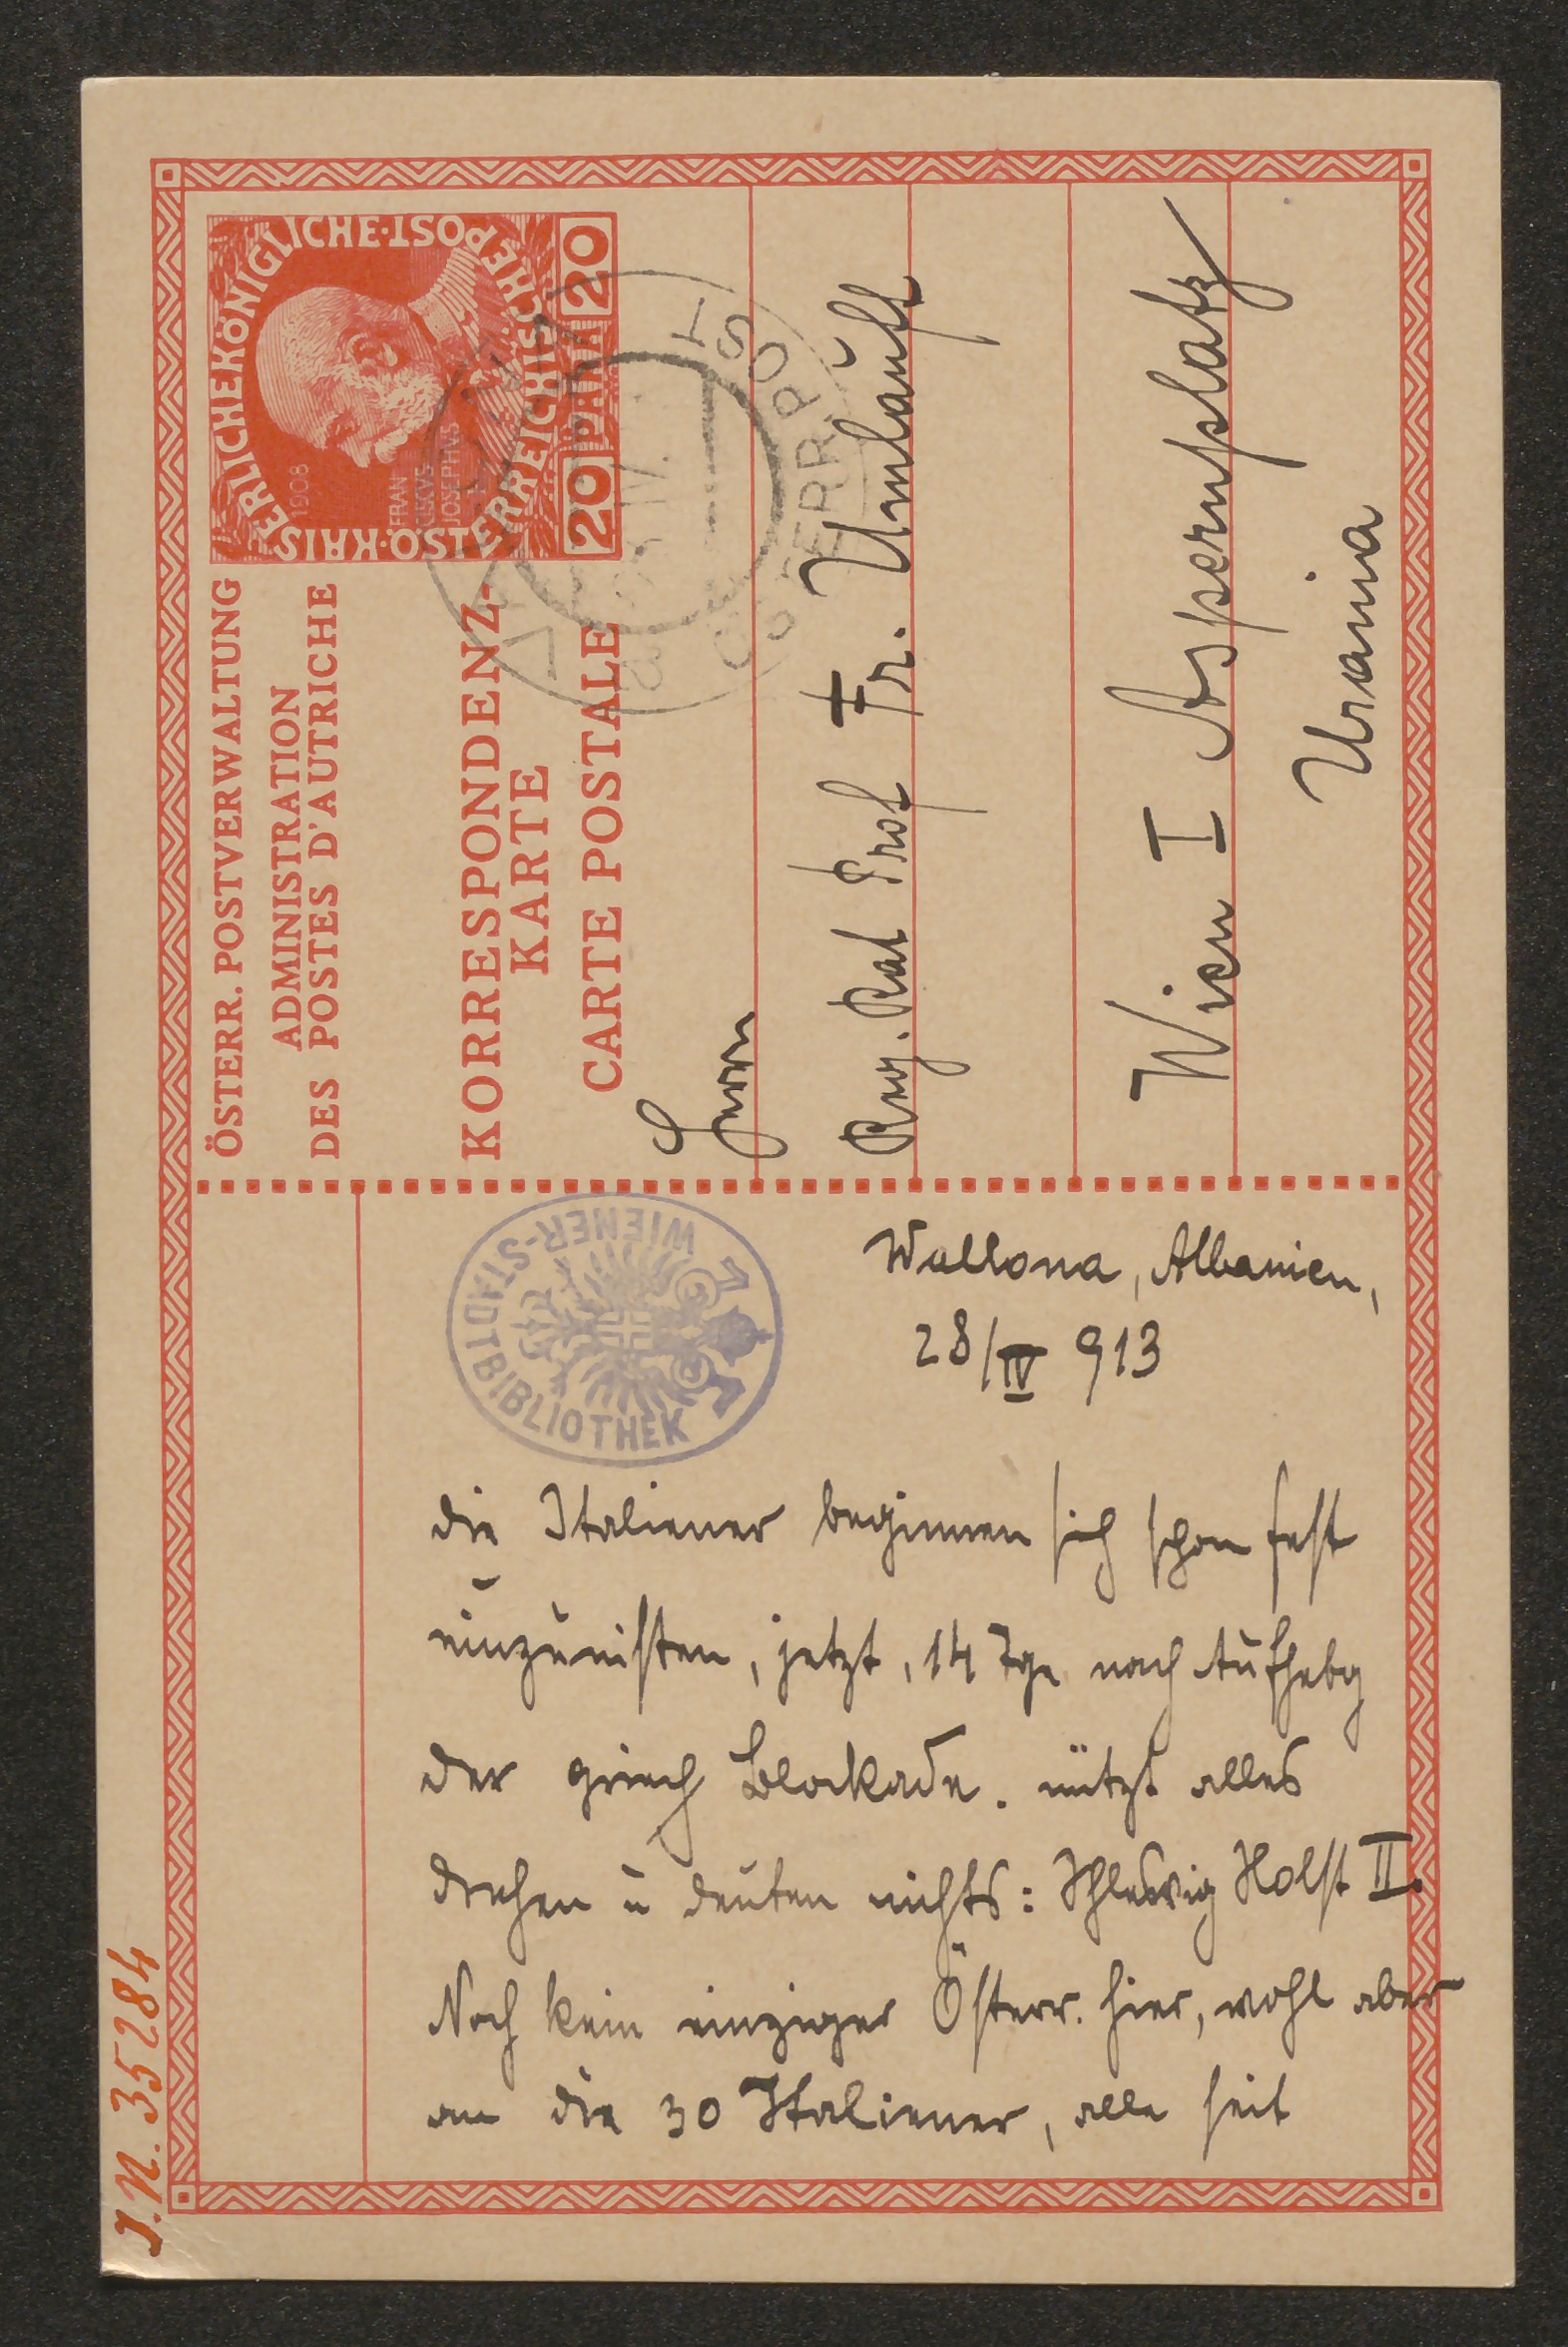 ÖSTERR. POSTVERWALTUNG
ADMINISTRATION
DES POSTES D'AUTRICHE
KORRESPONDENZ-
KARTE
CARTE POSTALE
KAISERLICHEKÖNIGLICHE·ÖSTERREICHISCHEPOST
1908
FRAN
CISCVS
JOSEPHVS
20 PARA 20
ÖSTERR. POST
Herrn
Reg. Rat Prof Fr. Umlauft
Wien I Aspernplatz
Urania
WIENER-STADTBIBLIOTHEK
Wallona, Albanien,
28/IV 913
die Italiener beginnen sich schon fest
einzunisten, jetzt, 14 Tge nach Aufhebg
der griech Blockade. nützt alles
drehen u deuten nichts: Schleswig Holst II.
Noch kein einziger Österr. hier, wohl aber
an die 30 Italiener, alle seit
J.N. 35284